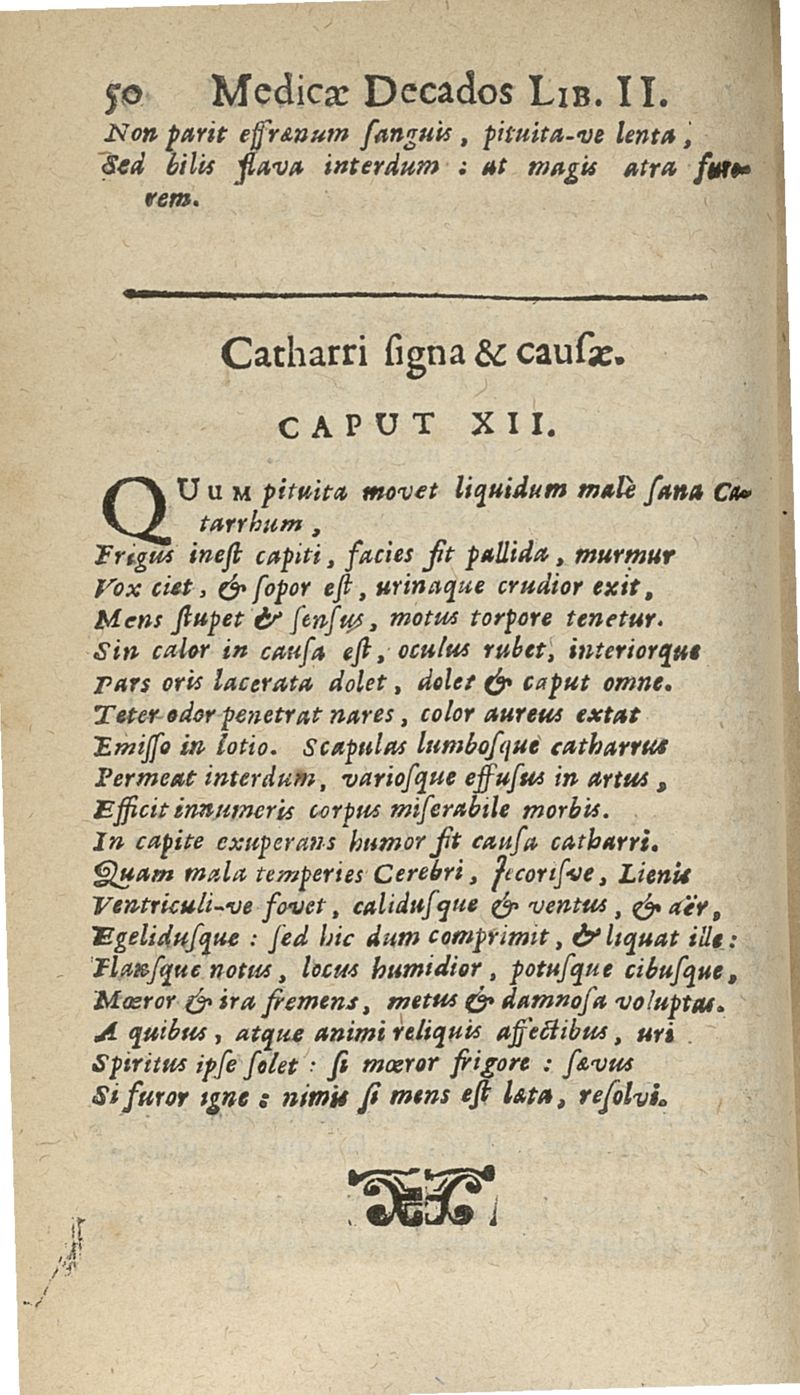 50 Medicæ Decados LIB. II.
Non parit effrænum ſanguis, pituita-ve lenta,
Sed bilis flava interdum : at magis atra furo-
rem.
Catharri ſigna & cauſæ.
CAPUT XII.
QUUM pituita movet liquidum malè ſana Ca-
tarrhum,
Frigus ineſt capiti, facies fit pallida, murmur
Vox ciet, & ſopor eſt, urinaque crudior exit,
Mens ſtupet & ſenſus, motus torpore tenetur.
Sin calor in cauſa eſt, oculus rubet, interiorque
Pars oris lacerata dolet, dolet & caput omne.
Teter odor penetrat nares, color aureus extat
Emiſſo in lotio. Scapulas lumboſque catharrus
Permeat interdum, varioſque effuſus in artus,
Efficit innumeris corpus miſerabile morbis.
In capite exuperans humor fit cauſa catharri.
Quam mala temperies Cerebri, Jecoriſve, Lienis
Ventriculi-ve fovet, caliduſque & ventus, & aër,
Egeliduſque : ſed hic dum comprimit, & liquat ille :
Flanſque notus, locus humidior, potuſque cibuſque,
Mœror & ira fremens, metus & damnoſa voluptas.
A quibus, atque animi reliquis affectibus, uri
Spiritus ipſe ſolet : ſi mœror frigore : ſævus
Si furor igne : nimis ſi mens eſt læta, reſolvi.